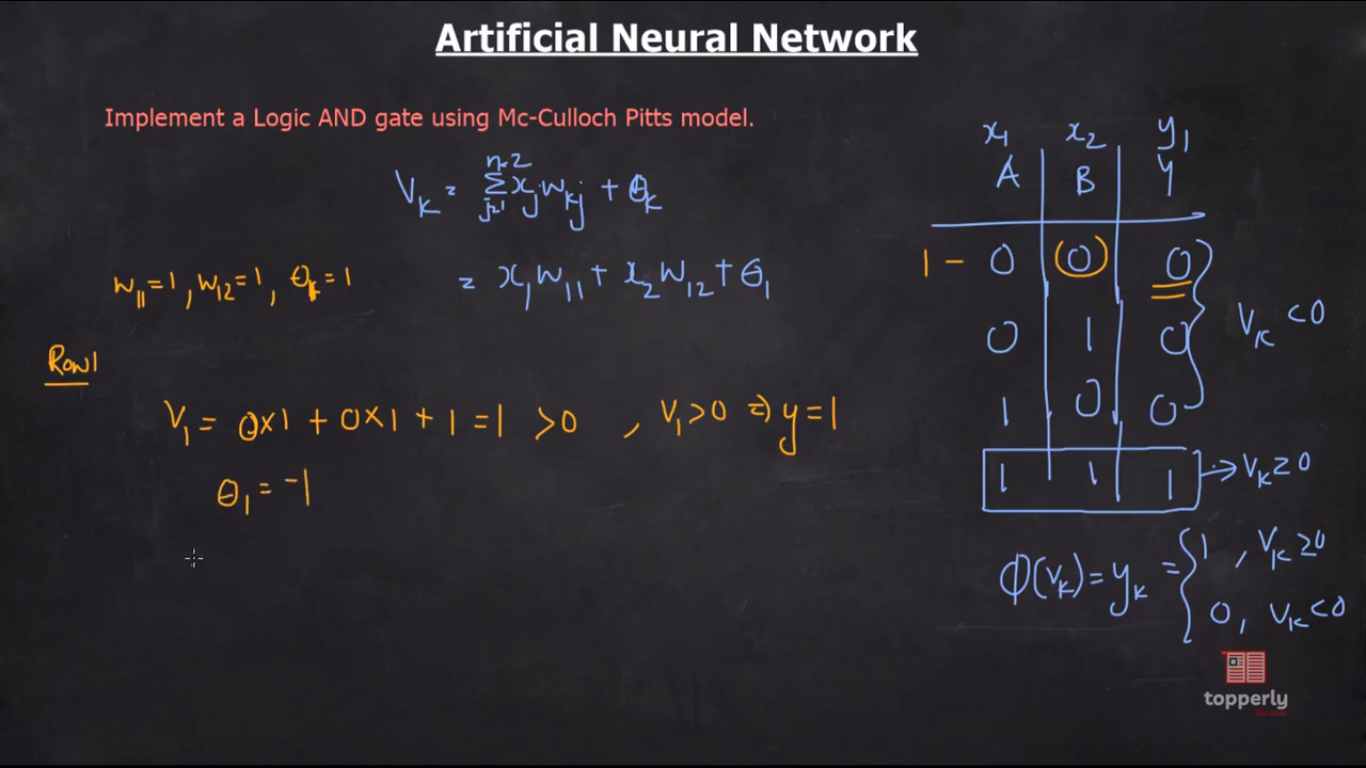 Artificial Neural Network
Implement a Logic AND gate using Mc-Culloch Pitts model.
V_K = Σ_{j=1}^{n=2} x_j w_{kj} + θ_K
= x_1 W_{11} + x_2 W_{12} + θ_1
W_{11} = 1, W_{12} = 1, θ_k = 1
Row 1
V_1 = 0×1 + 0×1 + 1 = 1 > 0 , V_1 > 0 ⇒ y = 1
θ_1 = -1
x_1 x_2 y_1
A B Y
1 - 0 (0) 0
0 1 0
1 0 0
V_K < 0
1 1 1 → V_K ≥ 0
Φ(V_K) = y_K = { 1 , V_K ≥ 0
0, V_K < 0
topperly